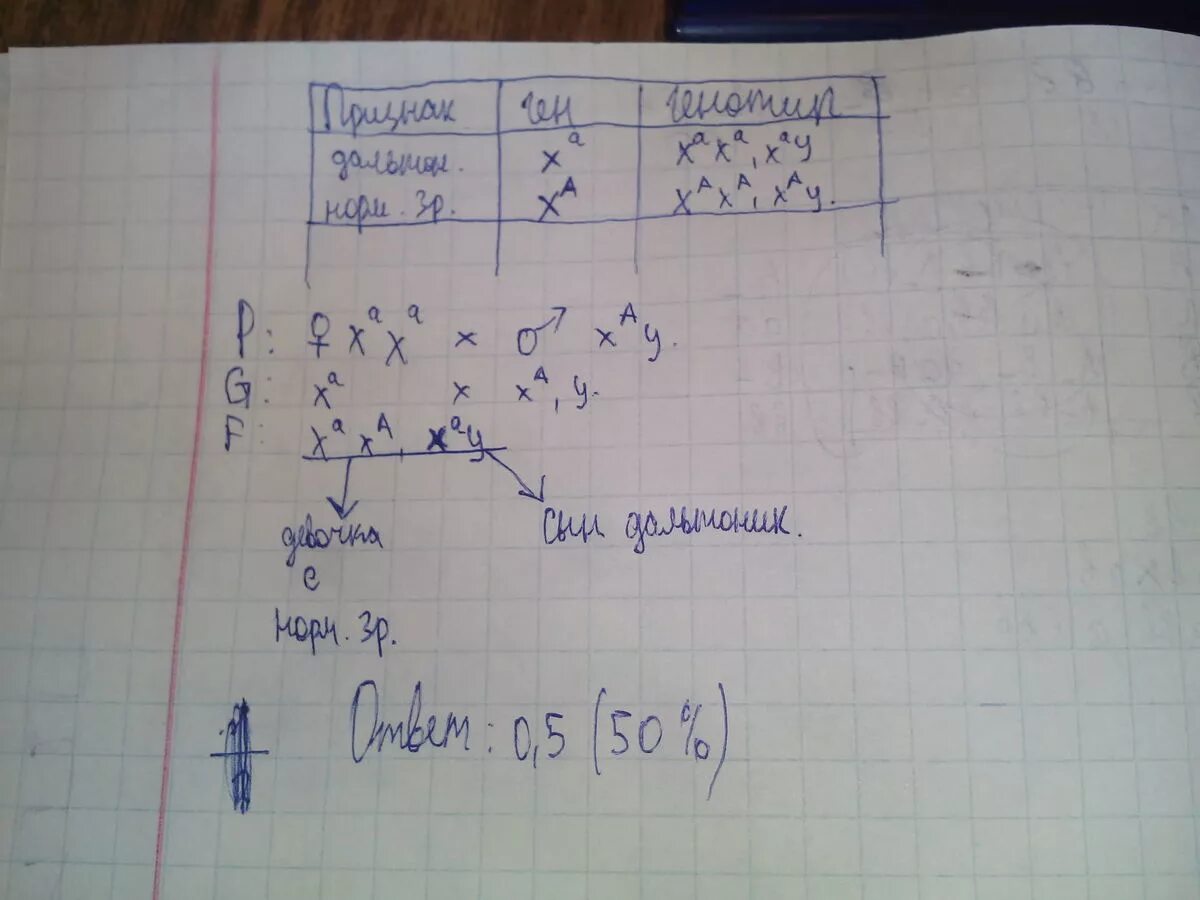 Признак ген генотип
дальтон. xᵃ xᵃxᵃ, xᵃy
норм. зр. xᴬ xᴬxᴬ, xᴬy.
P: ♀ xᵃxᵃ × ♂ xᴬy.
G: xᵃ × xᴬ, y.
F: xᵃxᴬ, xᵃy
девочка
с
норм. зр.
сын дальтоник.
Ответ: 0,5 (50%)